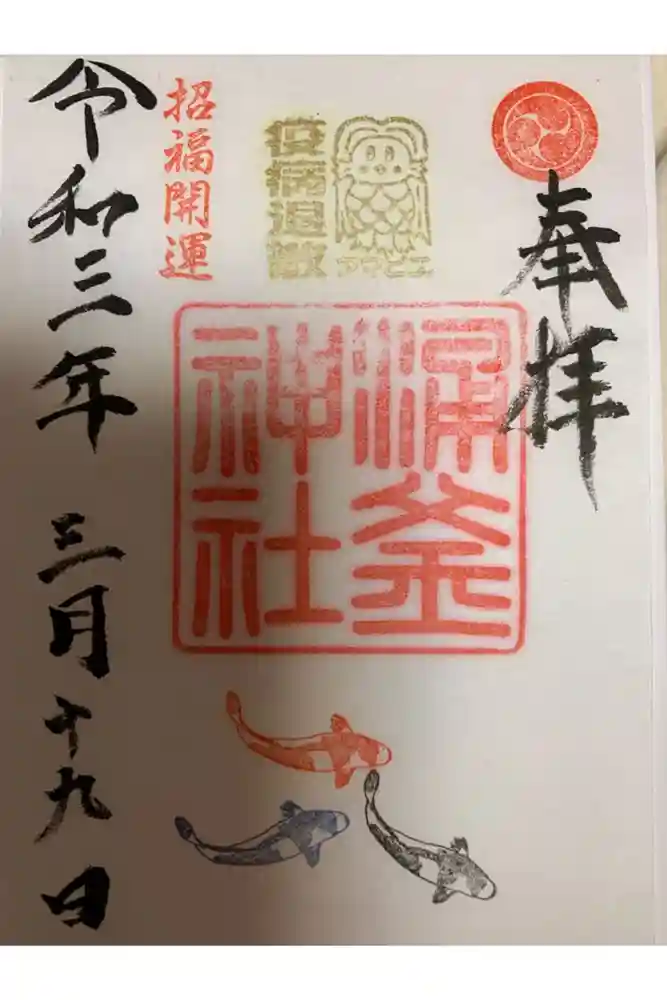 奉拝
アマビエ
疫病退散
涌釜
神社
招福開運
令和三年 三月十九日